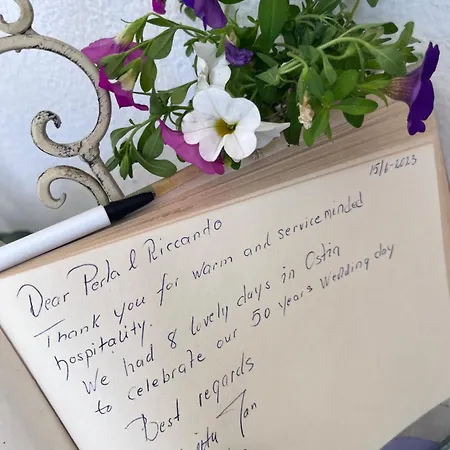 15/6-2023
Dear Perla & Riccardo
Thank you for warm and serviceminded
hospitality.
We had 8 lovely days in Ostia
to celebrate our 50 years Wedding day
Best regards
Jan